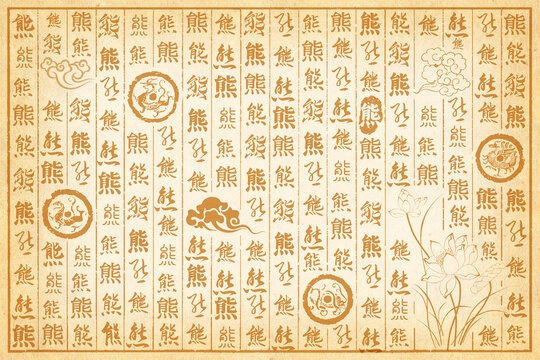 熊熊熊熊熊熊熊熊熊熊
熊熊熊熊熊熊熊熊熊熊
熊熊熊熊熊熊熊
熊熊熊熊熊熊熊
熊熊熊熊熊熊熊熊熊熊
熊熊熊熊熊熊熊熊熊熊熊
熊熊熊熊熊熊熊熊熊熊熊
熊熊熊熊熊熊熊熊熊熊
熊熊熊熊熊熊熊熊熊熊熊
熊熊熊熊熊熊熊熊熊熊熊
熊熊熊熊熊熊熊熊熊熊
熊熊熊熊熊熊熊熊熊熊
熊熊熊熊熊熊熊熊熊熊熊
熊熊熊熊熊熊熊熊熊熊
熊熊熊熊熊熊熊熊熊熊熊
熊熊熊熊熊熊熊熊熊熊
熊熊熊熊熊熊熊熊熊
熊熊熊熊熊熊熊熊熊熊熊